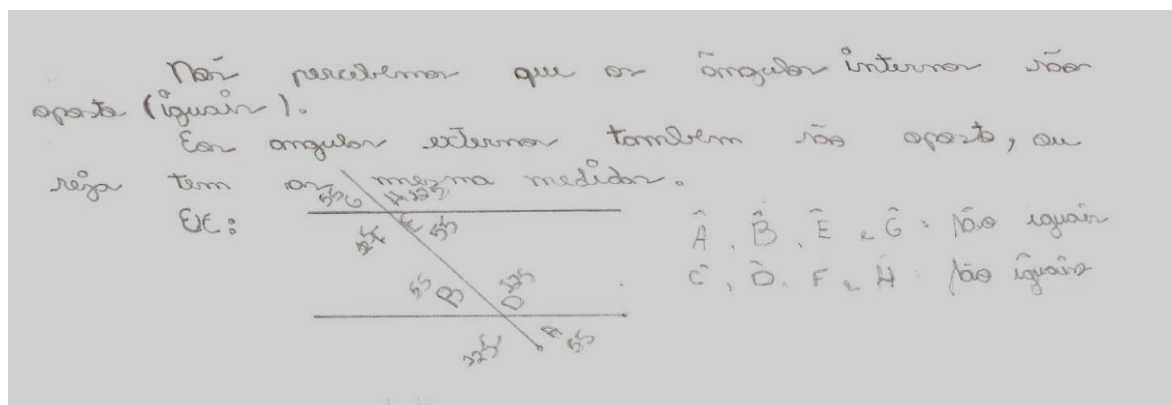 Nós percebemos que os ângulos internos são
oposto (iguais).
E os angulos externos também são oposto, ou
seja tem as mesma medidas.
Ex:
55 G 125
E 55
55 B D 125
125 55
Â, B̂, Ê e Ĝ: São iguais
Ĉ, D̂, F e Ĥ: São iguais